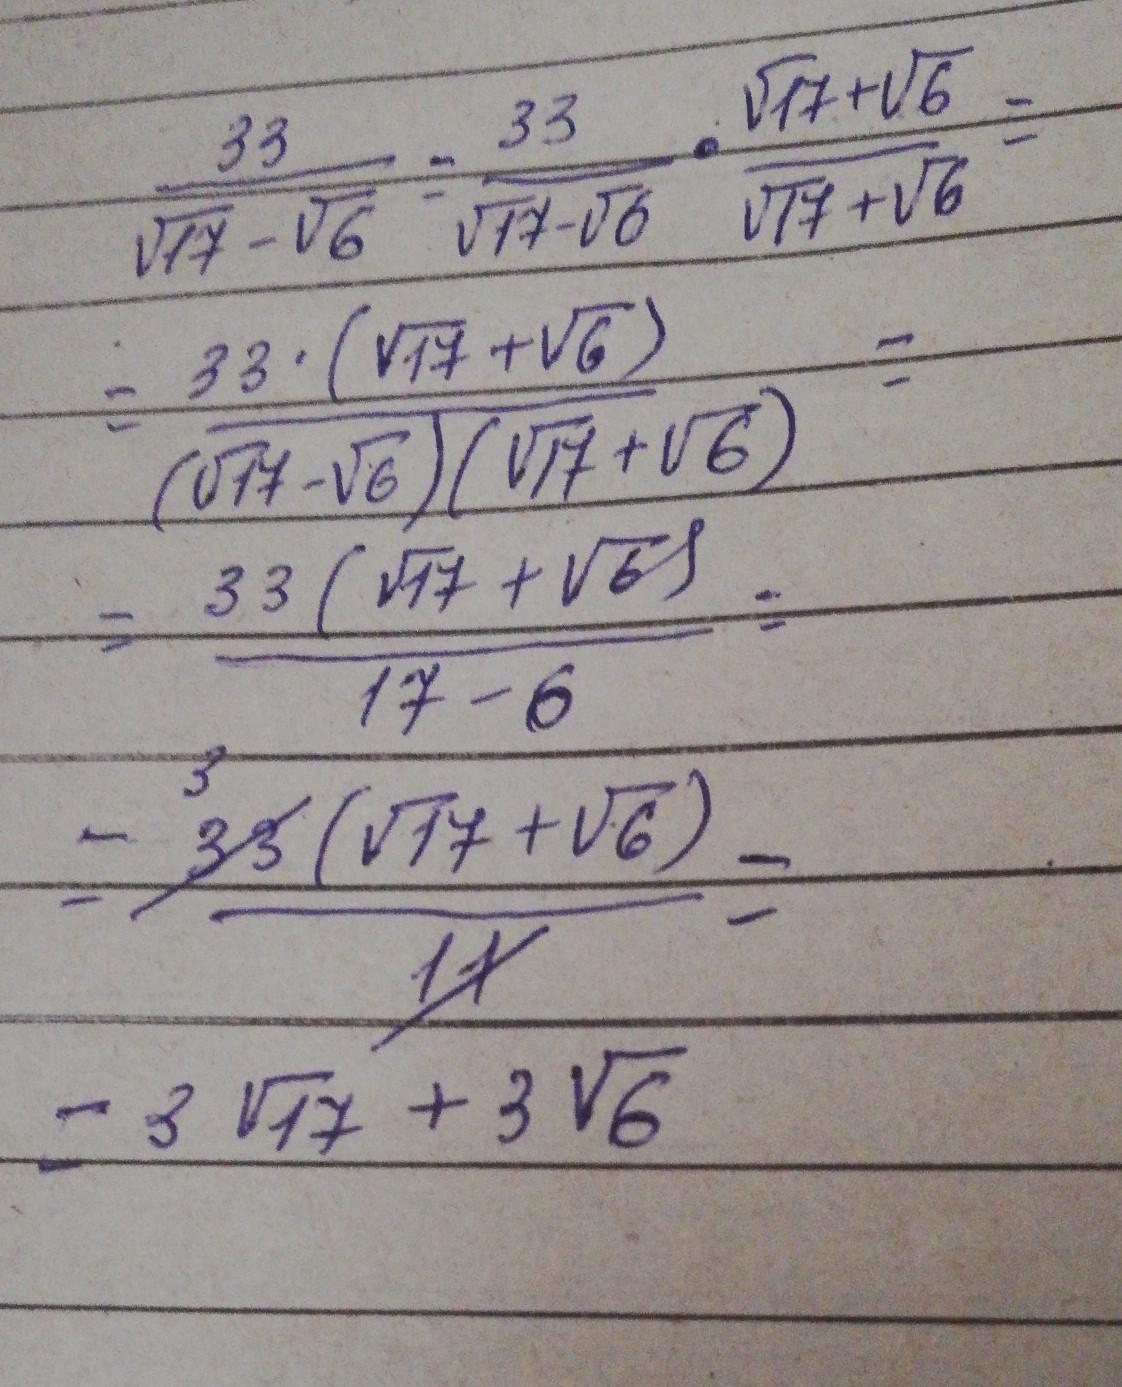 33/(√17-√6) = 33/(√17-√6) • (√17+√6)/(√17+√6) =
= 33·(√17+√6)/((√17-√6)(√17+√6)) =
= 33(√17+√6)/(17-6) =
3
= 33(√17+√6)/11 =
= 3√17+3√6